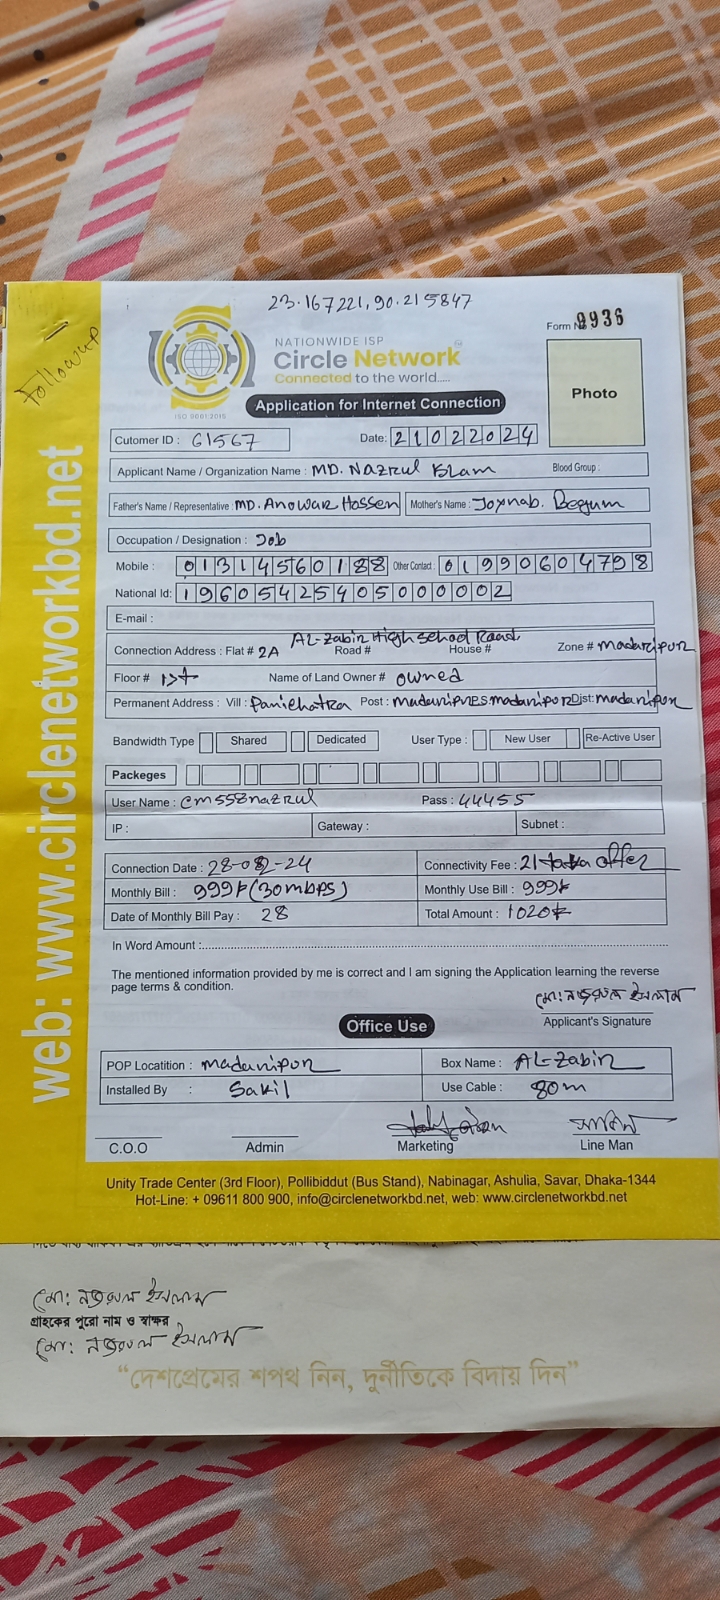 23.167221,90.215847
Followup
NATIONWIDE ISP
Circle Network
Connected to the world.....
ISO 9001:2015
Form No 9936
Photo
Application for Internet Connection
Cutomer ID : 61567 Date: 21022024
Applicant Name / Organization Name : MD. Nazrul Islam Blood Group :
Father's Name / Representative : MD. Anowar Hossen Mother's Name : Joynab. Begum
Occupation / Designation : Job
Mobile : 01314560188 Other Contact : 01990604798
National Id: 19605425405000002
E-mail :
AL-Zabir High School Road
Connection Address : Flat # 2A Road # House # Zone # madaripur
Floor # 1st Name of Land Owner # owned
Permanent Address : Vill : Panichatra Post : madaripur PS: madaripur Dist: madaripur
Bandwidth Type Shared Dedicated User Type : New User Re-Active User
Packeges
User Name : cm558nazrul Pass : 44455
IP : Gateway : Subnet :
Connection Date : 28-02-24 Connectivity Fee : 21 taka offer
Monthly Bill : 999৳ (30mbps) Monthly Use Bill : 999৳
Date of Monthly Bill Pay : 28 Total Amount : 1020৳
In Word Amount :
The mentioned information provided by me is correct and I am signing the Application learning the reverse
page terms & condition.
মো: নজরুল ইসলাম
Applicant's Signature
Office Use
POP Locatition : madaripur Box Name : AL-Zabir
Installed By : Sakil Use Cable : 80m
C.O.O Admin Marketing Line Man
Unity Trade Center (3rd Floor), Pollibiddut (Bus Stand), Nabinagar, Ashulia, Savar, Dhaka-1344
Hot-Line: + 09611 800 900, info@circlenetworkbd.net, web: www.circlenetworkbd.net
web: www.circlenetworkbd.net
মো: নজরুল ইসলাম
গ্রাহকের পুরো নাম ও স্বাক্ষর
মো: নজরুল ইসলাম
“দেশপ্রেমের শপথ নিন, দুর্নীতিকে বিদায় দিন”